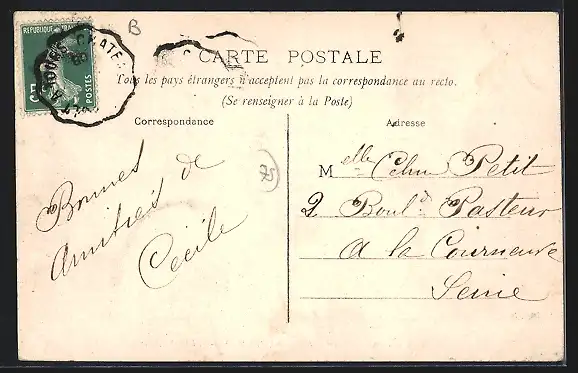 RÉPUBLIQUE FRANÇAISE
POSTES
B
CARTE POSTALE
Tous les pays étrangers n'acceptent pas la correspondance au recto.
(Se renseigner à la Poste)
Correspondance
Adresse
75
Bonnes
Amitiés de
Cécile
Melle Petit
2 Bould Pasteur
A la Courneuve
Seine